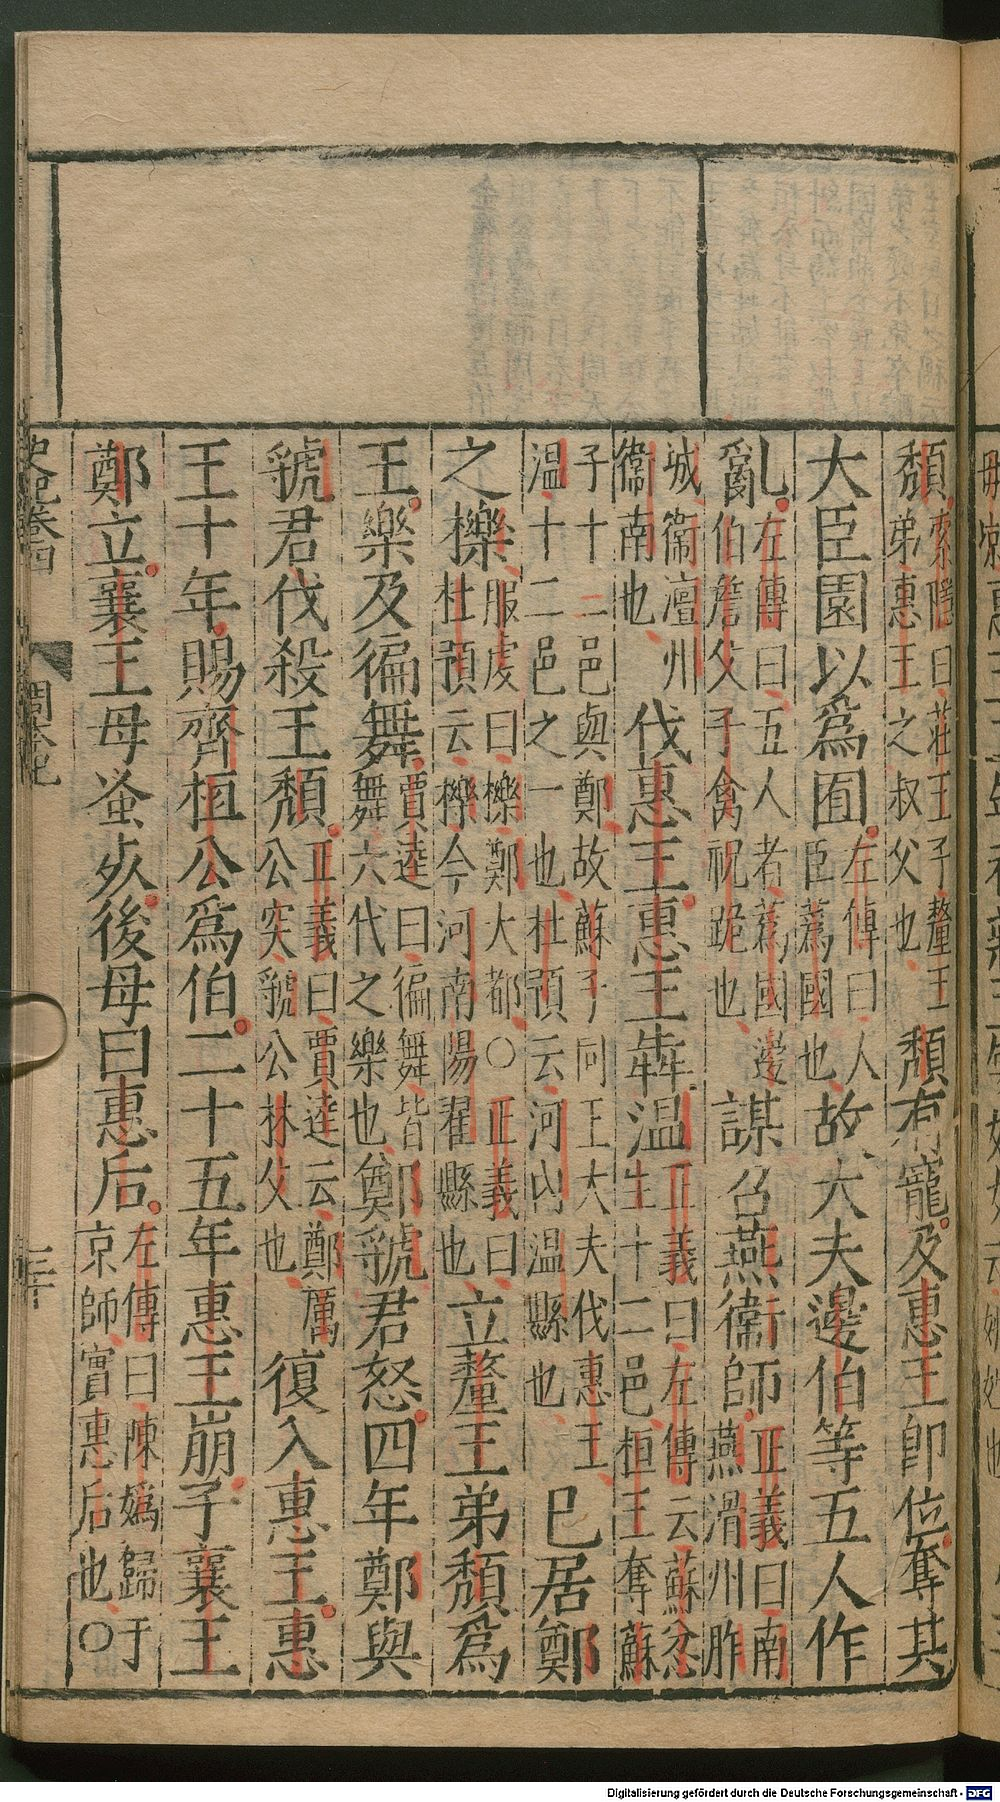 頹索隱曰莊王子釐王弟惠王之叔父也頹有寵及惠王即位奪其
大臣園以爲囿左傳曰人臣蒍國也故大夫邊伯等五人作
亂左傳曰五人者蒍國邊伯詹父子禽祝跪也謀召燕衞師正義曰南燕滑州胙
城衞澶州衞南也伐惠王惠王犇温正義曰左傳云蘇忿生十二邑桓王奪蘇
子十二邑與鄭故蘇子同王大夫伐惠王温十二邑之一也杜預云河内温縣也已居鄭
之櫟服虔曰櫟鄭大都○正義曰杜預云櫟今河南陽翟縣也立釐王弟頹爲
王樂及徧舞賈逵曰徧舞皆舞六代之樂也鄭虢君怒四年鄭與
虢君伐殺王頹正義曰賈逵云鄭厲公突虢公林父也復入惠王惠
王十年賜齊桓公爲伯二十五年惠王崩子襄王
鄭立襄王母蚤死後母曰惠后左傳曰陳嬀歸于京師實惠后也○
史記卷四 周本紀 三十
Digitalisierung gefördert durch die Deutsche Forschungsgemeinschaft - DFG